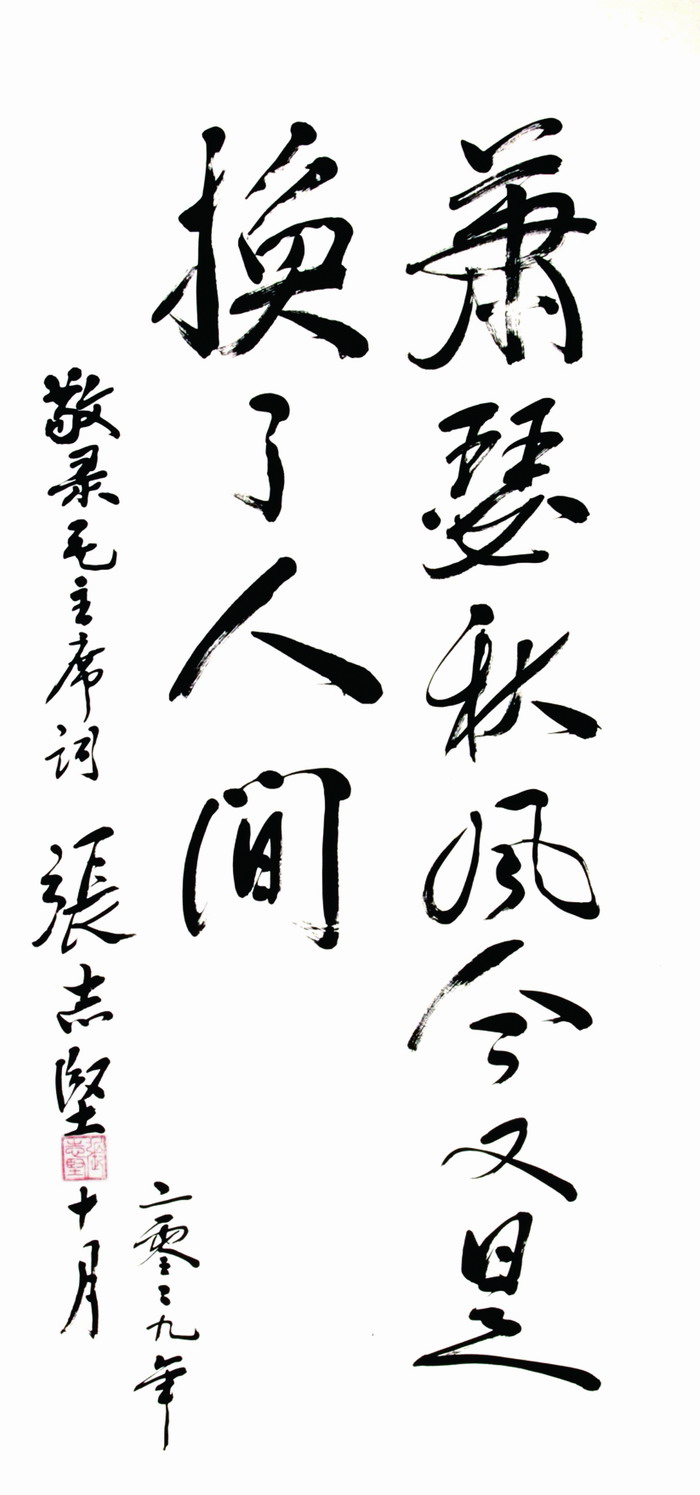 萧瑟秋風今又是
換了人間
二零零九年
敬录毛主席词 張志堅
十月